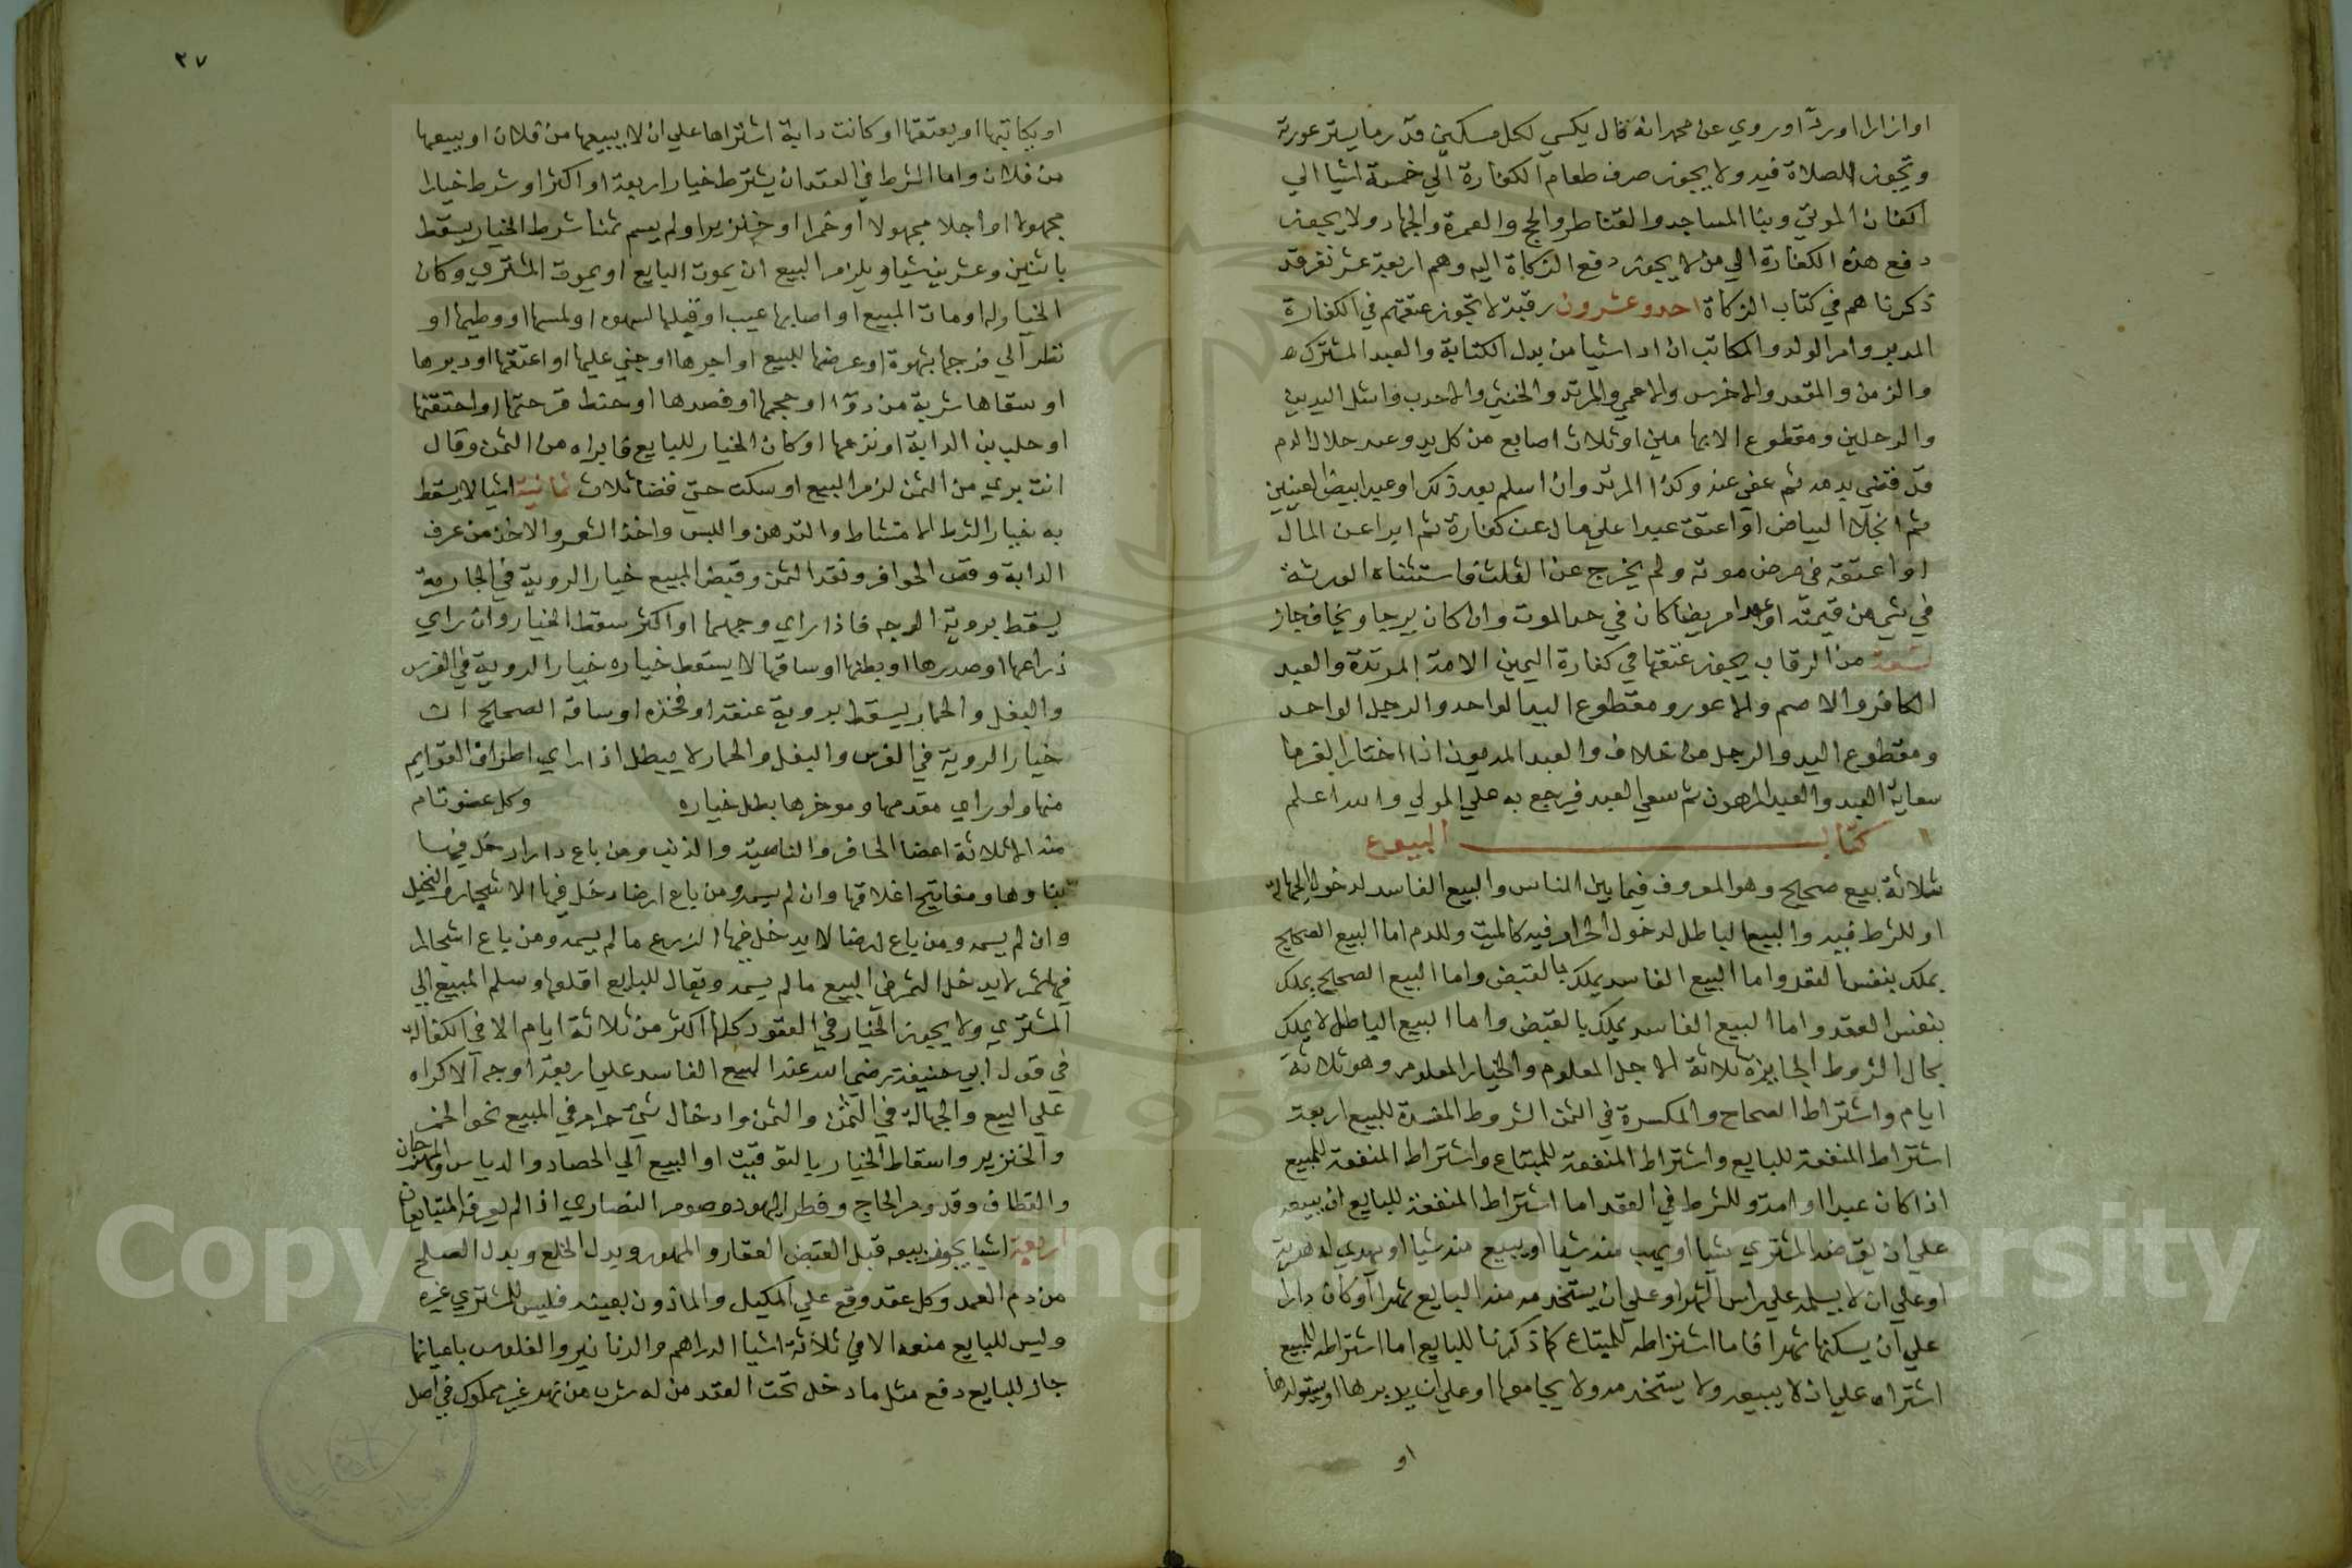 او ازارا او ردآ وروي عن محمد انه قال يكسي لكل مسكين قدر ما يستر عورته
وتجوز الصلاة فيه ولا يجوز صرف طعام الكفارة الي خمسة اشيا الي
اكفان الموتي وبنا المساجد والقناطر والحج والعمرة والجهاد ولا يجوز
دفع هذه الكفارة الي من لا يجوز دفع الزكاة اليه وهم اربعة عشر نفر قد
ذكرناهم في كتاب الزكاة احد وعشرون رقبة لا تجوز عتقهم في الكفارة
المدبر وام الولد والمكاتب ان ادا شيا من بدل الكتابة والعبد المشترك
والزمن والمقعد والاخرس والاعمي والمرتد والخنثي والاحدب واشل اليدين
والرجلين ومقطوع الابهامين او ثلاث اصابع من كل يد وعبد حلال الدم
قد قضي بدمه ثم عفي عنه وكذا المرتد وان اسلم بعد ذلك او عبد ابيض العينين
ثم انجلا البياض او اعتق عبدا علي مال عن كفارة ثم ابرا عن المال
او اعتقه في مرض موته ولم يخرج عن الثلث فاستثناه الورثة
في شي من قيمته او عبدا مريضا كان في حد الموت وان كان يرجا ويخاف جاز
تسعة من الرقاب يجوز عتقها في كفارة اليمين الامة المرتدة والعبد
الكافر والاصم والاعور ومقطوع اليد الواحد والرجل الواحد
ومقطوع اليد والرجل من خلاف والعبد المديون اذا اختار الغرما
سعاية العبد والعبد المرهون ثم سعي العبد فيرجع به علي المولي والله اعلم
كتاب البيوع
ثلاثة بيع صحيح وهو المعروف فيما بين الناس والبيع الفاسد لدخول الجهالة
او للشرط فيه والبيع الباطل لدخول الحرام فيه كالميت وللدم اما البيع الصحيح
يملك بنفس العقد واما البيع الفاسد يملك بالقبض واما البيع الصحيح يملك
بنفس العقد واما البيع الفاسد يملك بالقبض واما البيع الباطل لا يملك
بحال الشروط الجايزة ثلاثة الاجل المعلوم والخيار المعلوم وهو ثلاثة
ايام واشتراط الصحاح والمكسرة في الثمن الشروط المفسدة للبيع اربعة
اشتراط المنفعة للبايع واشتراط المنفعة للمبتاع واشتراط المنفعة للمبيع
اذا كان عبدا او امة وللشرط في العقد اما اشتراط المنفعة للبايع ان يبيعه
علي ان يقرضه المشتري شيا او يهب منه شيا او يبيع منه شيا او يهدي له هدية
او علي ان لا يسلمه علي راس الشهر او علي ان يستخدمه منه البايع شهرا او كان دارا
علي ان يسكنها شهرا فاما اشتراطه للمبتاع كما ذكرنا للبايع اما اشتراطه للمبيع
اشتراه علي ان لا يبيعه ولا يستخدمه ولا يجامعها او علي ان يدبرها او يستولدها
او
٣٧
او يكاتبها او يعتقها او كانت دابة اشتراها علي ان لا يبيعها من فلان او يبيعها
من فلان واما الشرط في العقد ان يشترط خيار اربعة او اكثر او شرط خيارا
مجهولا او اجلا مجهولا او خمرا او خنزيرا ولم يسم ثمنا شرط الخيار يسقط
باثنين وعشرين شيا ويلزم البيع ان يموت البايع او يموت المشتري وكان
الخيار له او مات المبيع او اصابها عيب او قبلها لشهوه او لمسها او وطيها او
نظر الي فرجها بشهوة او عرضها للبيع او اجرها او جني عليها او اعتقها او دبرها
او سقاها شربة من دوا او حجمها او فصدها او خيط قرحتها او احتقنها
او حلب لبن الدابة او نزعها او كان الخيار للبايع فابراه من الثمن وقال
انت بري من الثمن لزم البيع او سكت حتي فضا ثلاث ثمانية اشيا لا يسقط
به خيار الشرط الامتشاط والتدهن واللبس واخذ الشعر والاخذ من عرف
الدابة وقص الحوافر ونقد الثمن وقبض المبيع خيار الروية في الجارية
يسقط بروية الوجه فاذا راي وجهها او اكثر سقط الخيار وان راي
ذراعها او صدرها او بطنها او ساقها لا يسقط خياره خيار الروية في الفرس
والبغل والحمار يسقط بروية عنقه او فخذه او ساقه الصحيح ان
خيار الروية في الفرس والبغل والحمار لا يبطل اذا راي اطراف القوايم
منها ولو راي مقدمها وموخرها بطل خياره وكل عضو تام
منه الا ثلاثة اعضا الحافر والناصية والذنب ومن باع دارا دخل فيها
بناوها ومفاتيح اغلاقها وان لم يسمه ومن باع ارضا دخل فيها الاشجار والنخيل
وان لم يسمه ومن باع ارضا لا يدخل فيها الزرع ما لم يسمه ومن باع اشجارا
فيها ثمر لا يدخل الثمر في البيع ما لم يسمه ويقال للبايع اقلعها وسلم المبيع الي
المشتري ولا يجوز الخيار في العقود كلها اكثر من ثلاثة ايام الا في الكفالة
في قول ابي حنيفة رضي الله عنه البيع الفاسد علي اربعة اوجه الاكراه
علي البيع والجهالة في الثمن والثمن وادخال شي حرام في المبيع نحو الخمر
والخنزير واسقاط الخيار بالتوقيت او البيع الي الحصاد والدياس والمهرجان
والقطاف وقدوم الحاج وفطر اليهود وصوم النصاري اذا لم يعرف المتبايعان
اربعة اشيا يجوز بيعه قبل القبض العقار والمهور وبدل الخلع وبدل الصلح
من دم العمد وكل عقد وقع علي المكيل والماذون بعينه فليس للمشتري غيره
وليس للبايع منعه الا في ثلاثة اشيا الدراهم والدنانير والفلوس باعيانها
جاز للبايع دفع مثل ما دخل تحت العقد من له شرب من نهر غير مملوك في اصل
Copyright © King Saud University
1957